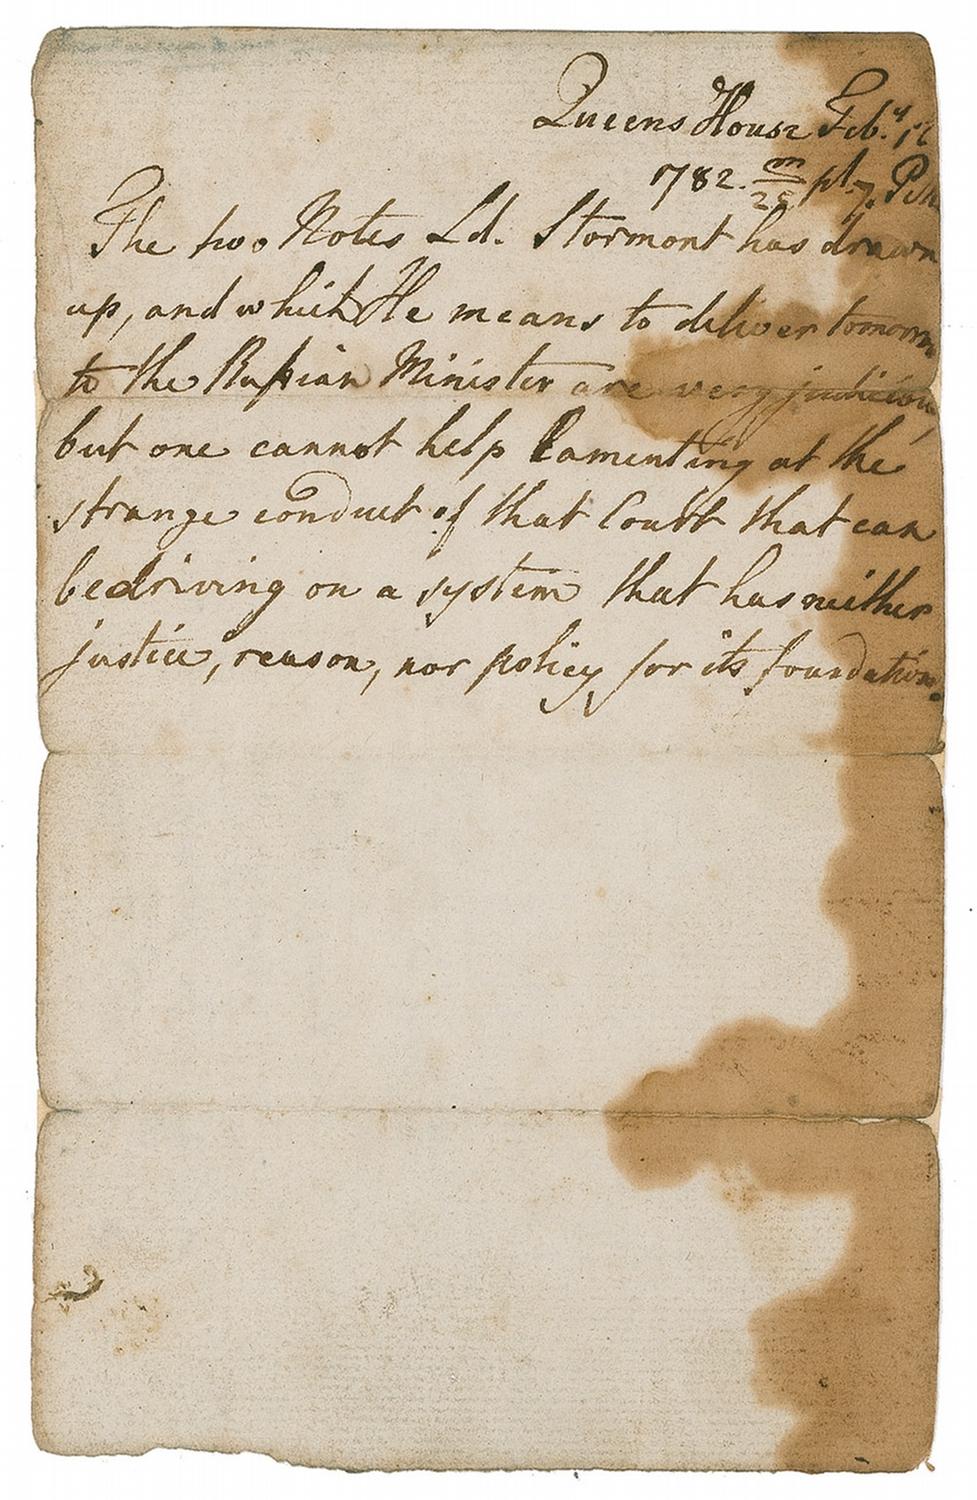 Queens House Feb.y
1782. m/25 pt. 7. P.M.
The two Notes Ld. Stormont has drawn
up, and which He means to deliver tomorrow
to the Russian Minister are very judicious,
but one cannot help lamenting at the
strange conduct of that Court that can
be driving on a system that has neither
justice, reason, nor policy for its foundation.